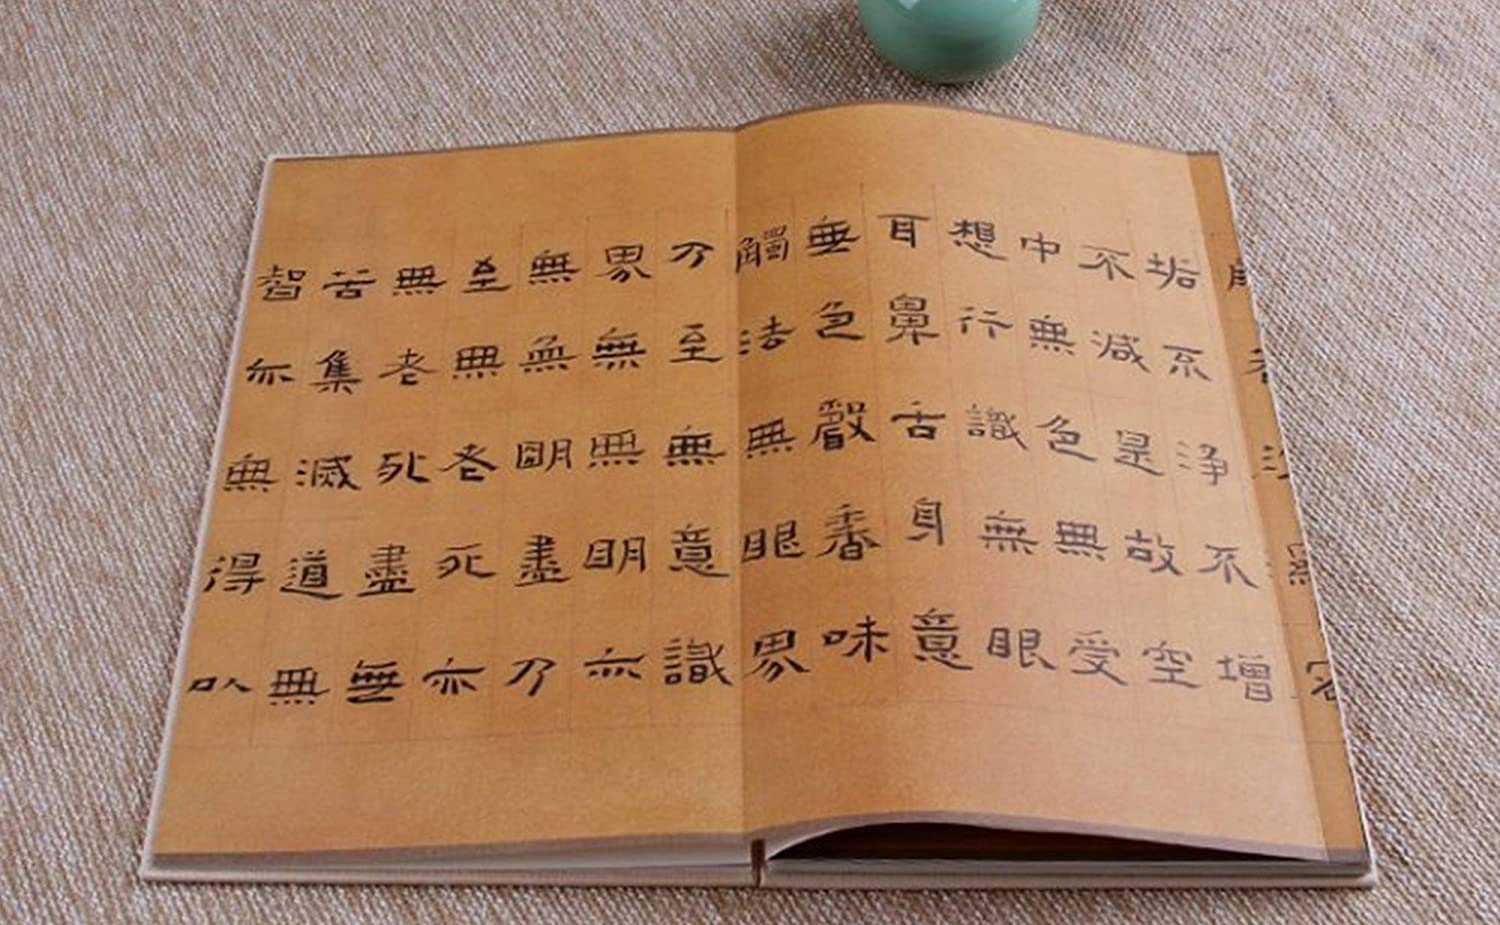 垢不淨不增
不減是故空
中無色無受
想行識無眼
耳鼻舌身意
無色聲香味
觸法無眼界
乃至無意識
界無無明亦
無無明盡乃
至無老死亦
無老死盡無
苦集滅道無
智亦無得以